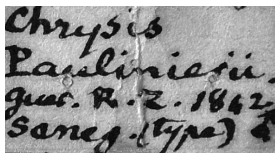 Chrysis
Paulinierii.
guer. R. Z. 1842
Seneg. (type) ♂